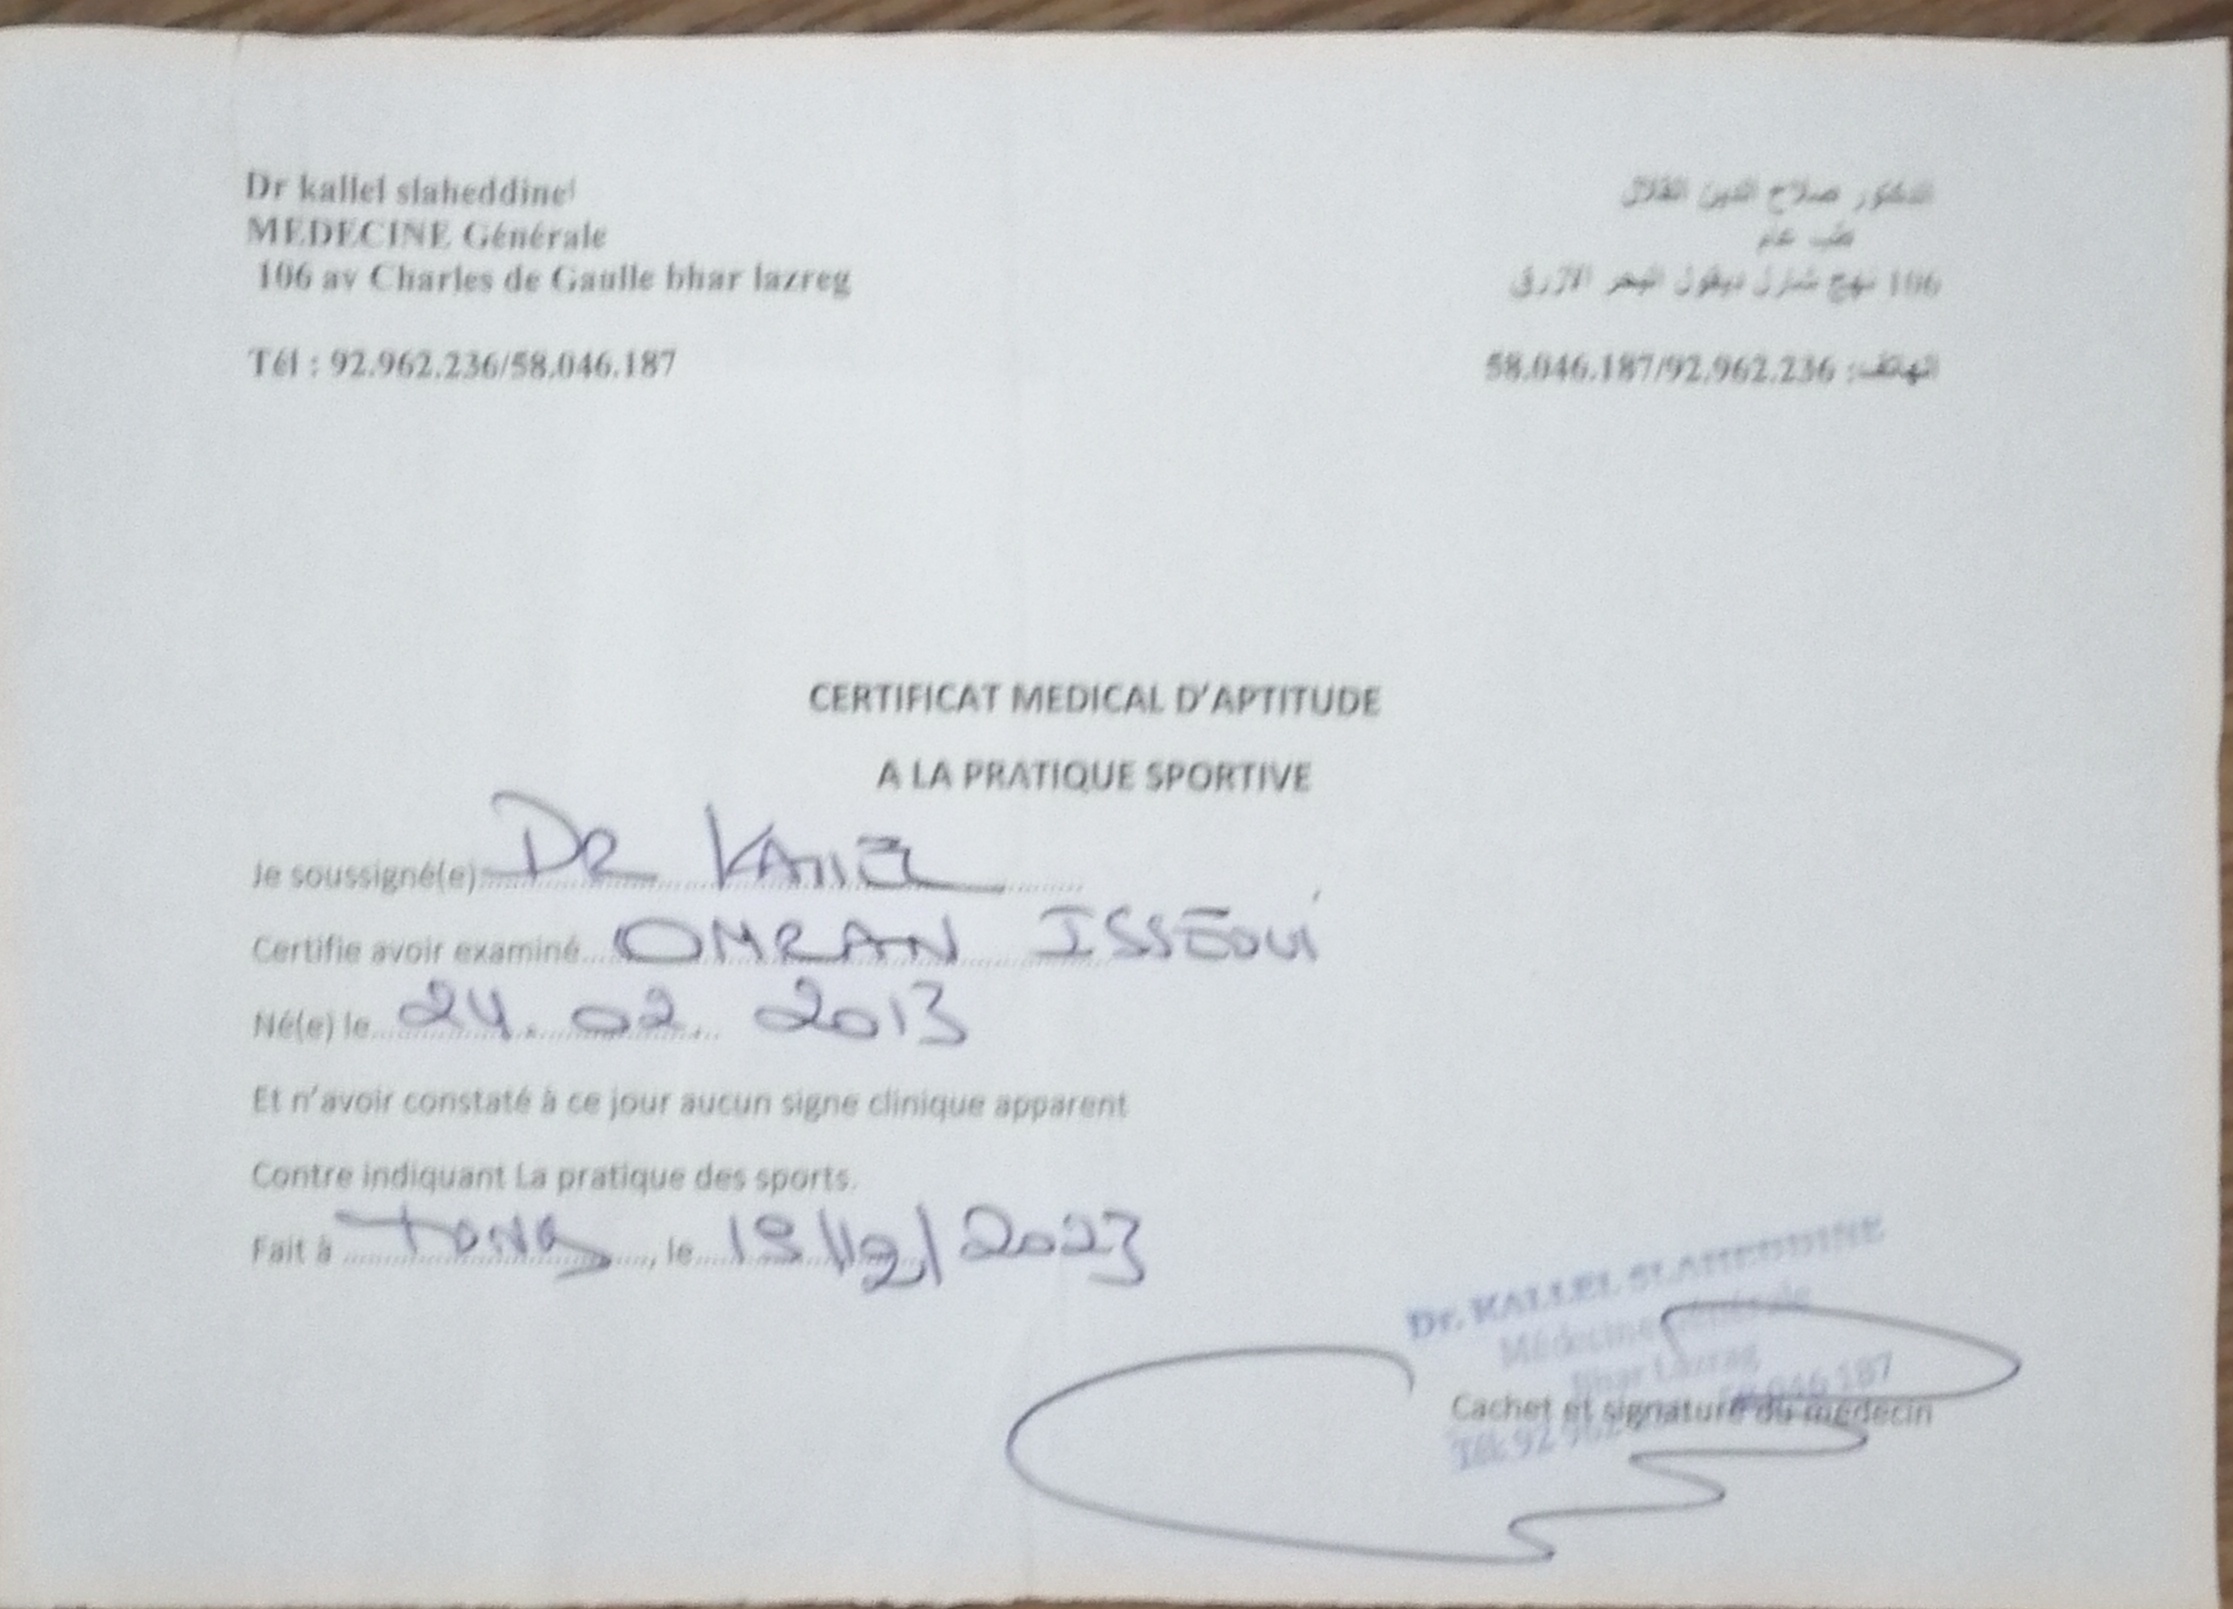 Dr kallel slaheddine
MEDECINE Générale
106 av Charles de Gaulle bhar lazreg
Tél : 92.962.236/58.046.187
الدكتور صلاح الدين القلال
طب عام
106 نهج شارل ديغول البحر الازرق
الهاتف: 58.046.187/92.962.236
CERTIFICAT MEDICAL D'APTITUDE
A LA PRATIQUE SPORTIVE
Je soussigné(e) DR KALLEL
Certifie avoir examiné OMRAN ISSEOUI
Né(e) le 24.02.2013
Et n'avoir constaté à ce jour aucun signe clinique apparent
Contre indiquant La pratique des sports.
Fait à, le 19/12/2023
Dr. KALLEL SLAHEDDINE
Médecine Générale
Bhar Lazreg
Tél: 92 962 58 046 187
Cachet et signature du médecin